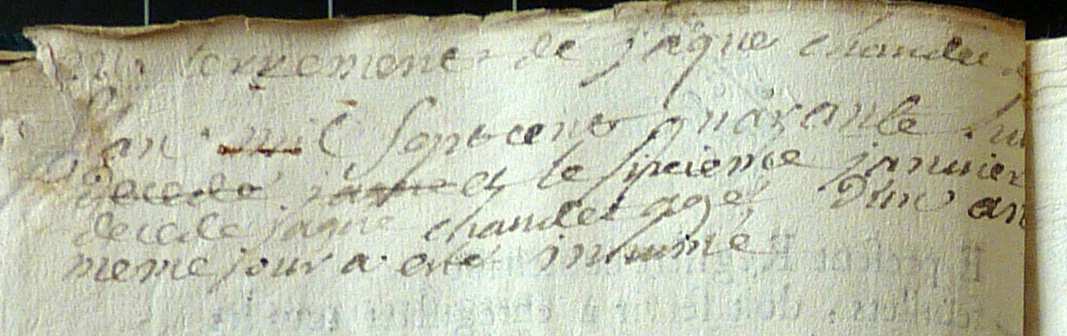 enterrement de jaque chandet
l'an mil sept cent quarante
decedé jaque et le sixieme janvier
decede jaque chandet agé d'un an
meme jour a eté inhumé